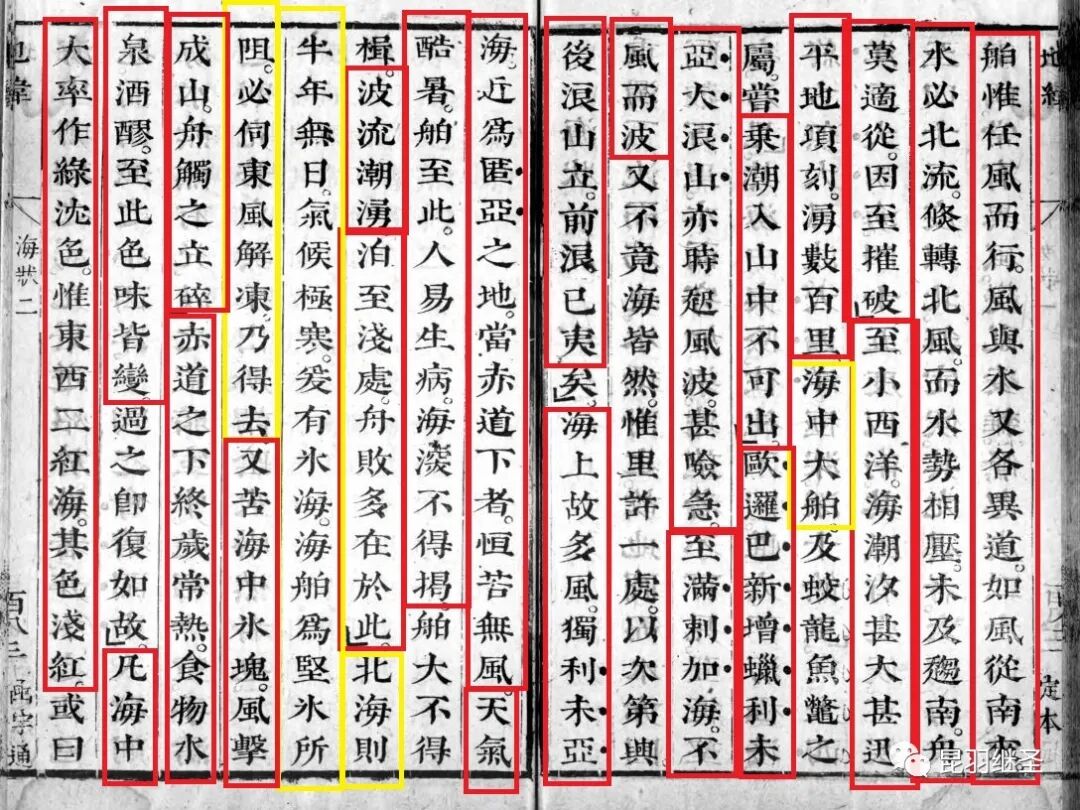 地緯
定本
舶惟任風而行。風與水又各異道。如風從南來
水必北流。倐轉北風。而水勢相壓。未及趨南。舟
莫適從。因至摧破至小西洋。海潮汐甚大甚迅
平地項刻。湧數百里海中大舶。及蛟龍魚鼈之
屬。嘗乗潮入山中不可出。歐邏巴新增蠟利未
亞大浪山。亦時起風波。甚險急。至滿剌加海。不
風而波。又不竟海皆然。惟里許一處。以次第興
後浪山立。前浪已夷矣。海上故多風。獨利未亞
海。近爲匿亞之地。當赤道下者。恒苦無風。天氣
酷暑。舶至此。人易生病。海淺不得揭。舶大不得
楫。波流潮湧泊至淺處。舟敗多在於此。北海則
半年無日。氣候極寒。爰有氷海。海舶爲堅氷所
阻。必伺東風解凍。乃得去。又苦海中氷塊。風擊
成山。舟觸之立碎赤道之下終歲常熱。食物水
泉酒醪。至此色味皆變。過之卽復如故。凡海中
大率作綠沈色。惟東西二紅海。其色淺紅。或曰
地緯
海狀二
百八三
函宇通
昆羽继圣